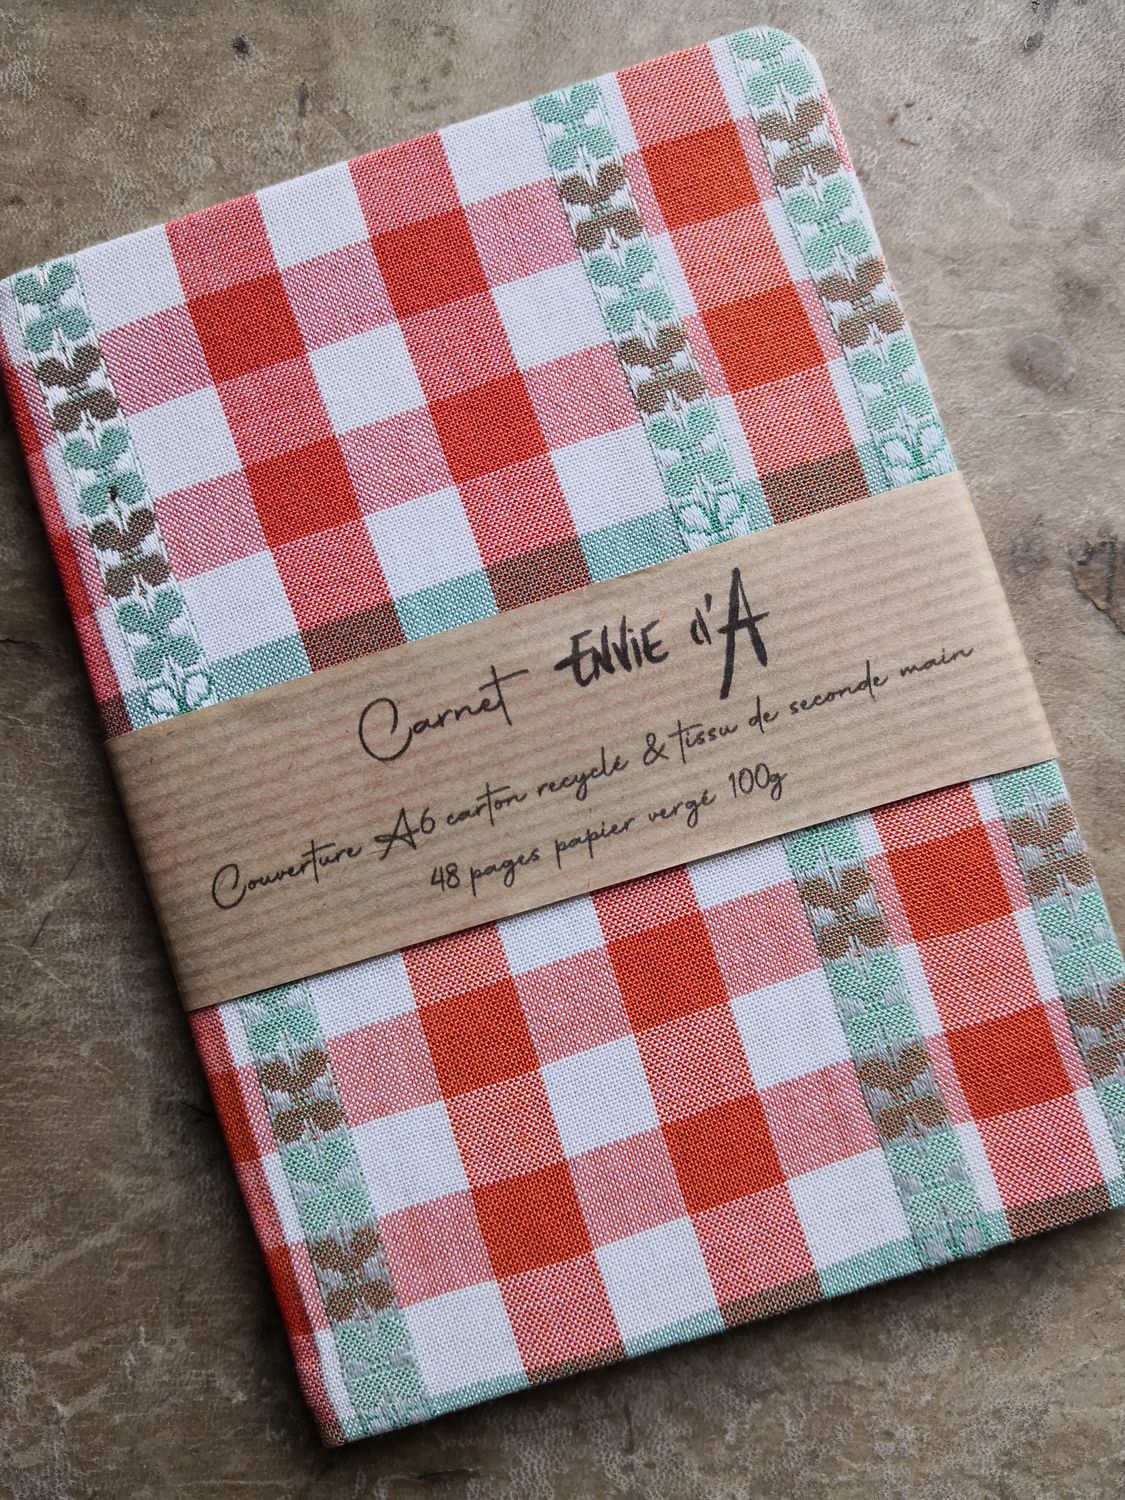 Carnet ENViE d'A
Couverture A6 carton recyclé & tissu de seconde main
48 pages papier vergé 100g